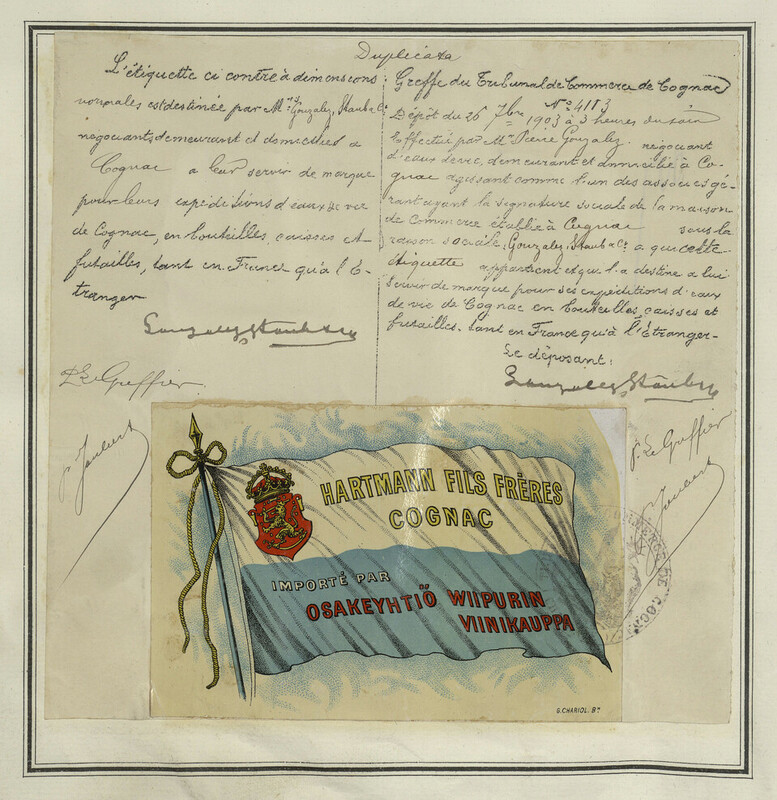 Duplicata
L'étiquette ci contre à dimensions
normales est destinée par M.rs Gonzalez, Staub & Cº
négociants demeurant et domiciliés à
Cognac à leur servir de marque
pour leurs expéditions d'eaux de vie
de Cognac, en bouteilles, caisses et
futailles, tant en France qu'à l'É-
tranger
Gonzalez Staub & Cº
P. Le Greffier
Joubert
Greffe du Tribunal de Commerce de Cognac
Nº 4113
Dépôt du 26 7bre 1903 à 3 heures du soir
Effectué par Mr Pierre Gonzalez négociant
d'eaux de vie, demeurant et domicilié à Co-
gnac agissant comme l'un des associés gé-
rant ayant la signature sociale de la maison
de commerce établie à Cognac sous la
raison sociale, Gonzalez, Staub & Cº à qui cette
étiquette appartient et qui l'a destine à lui
servir de marque pour ses expéditions d'eaux
de vie de Cognac en bouteilles, caisses et
futailles. tant en France qu'à l'Étranger-
Le déposant:
Gonzalez Staub & Cº
P. Le Greffier
Joubert
HARTMANN FILS FRÈRES
COGNAC
IMPORTÉ PAR
OSAKEYHTIÖ WIIPURIN
VIINIKAUPPA
G. CHARIOL. Bx